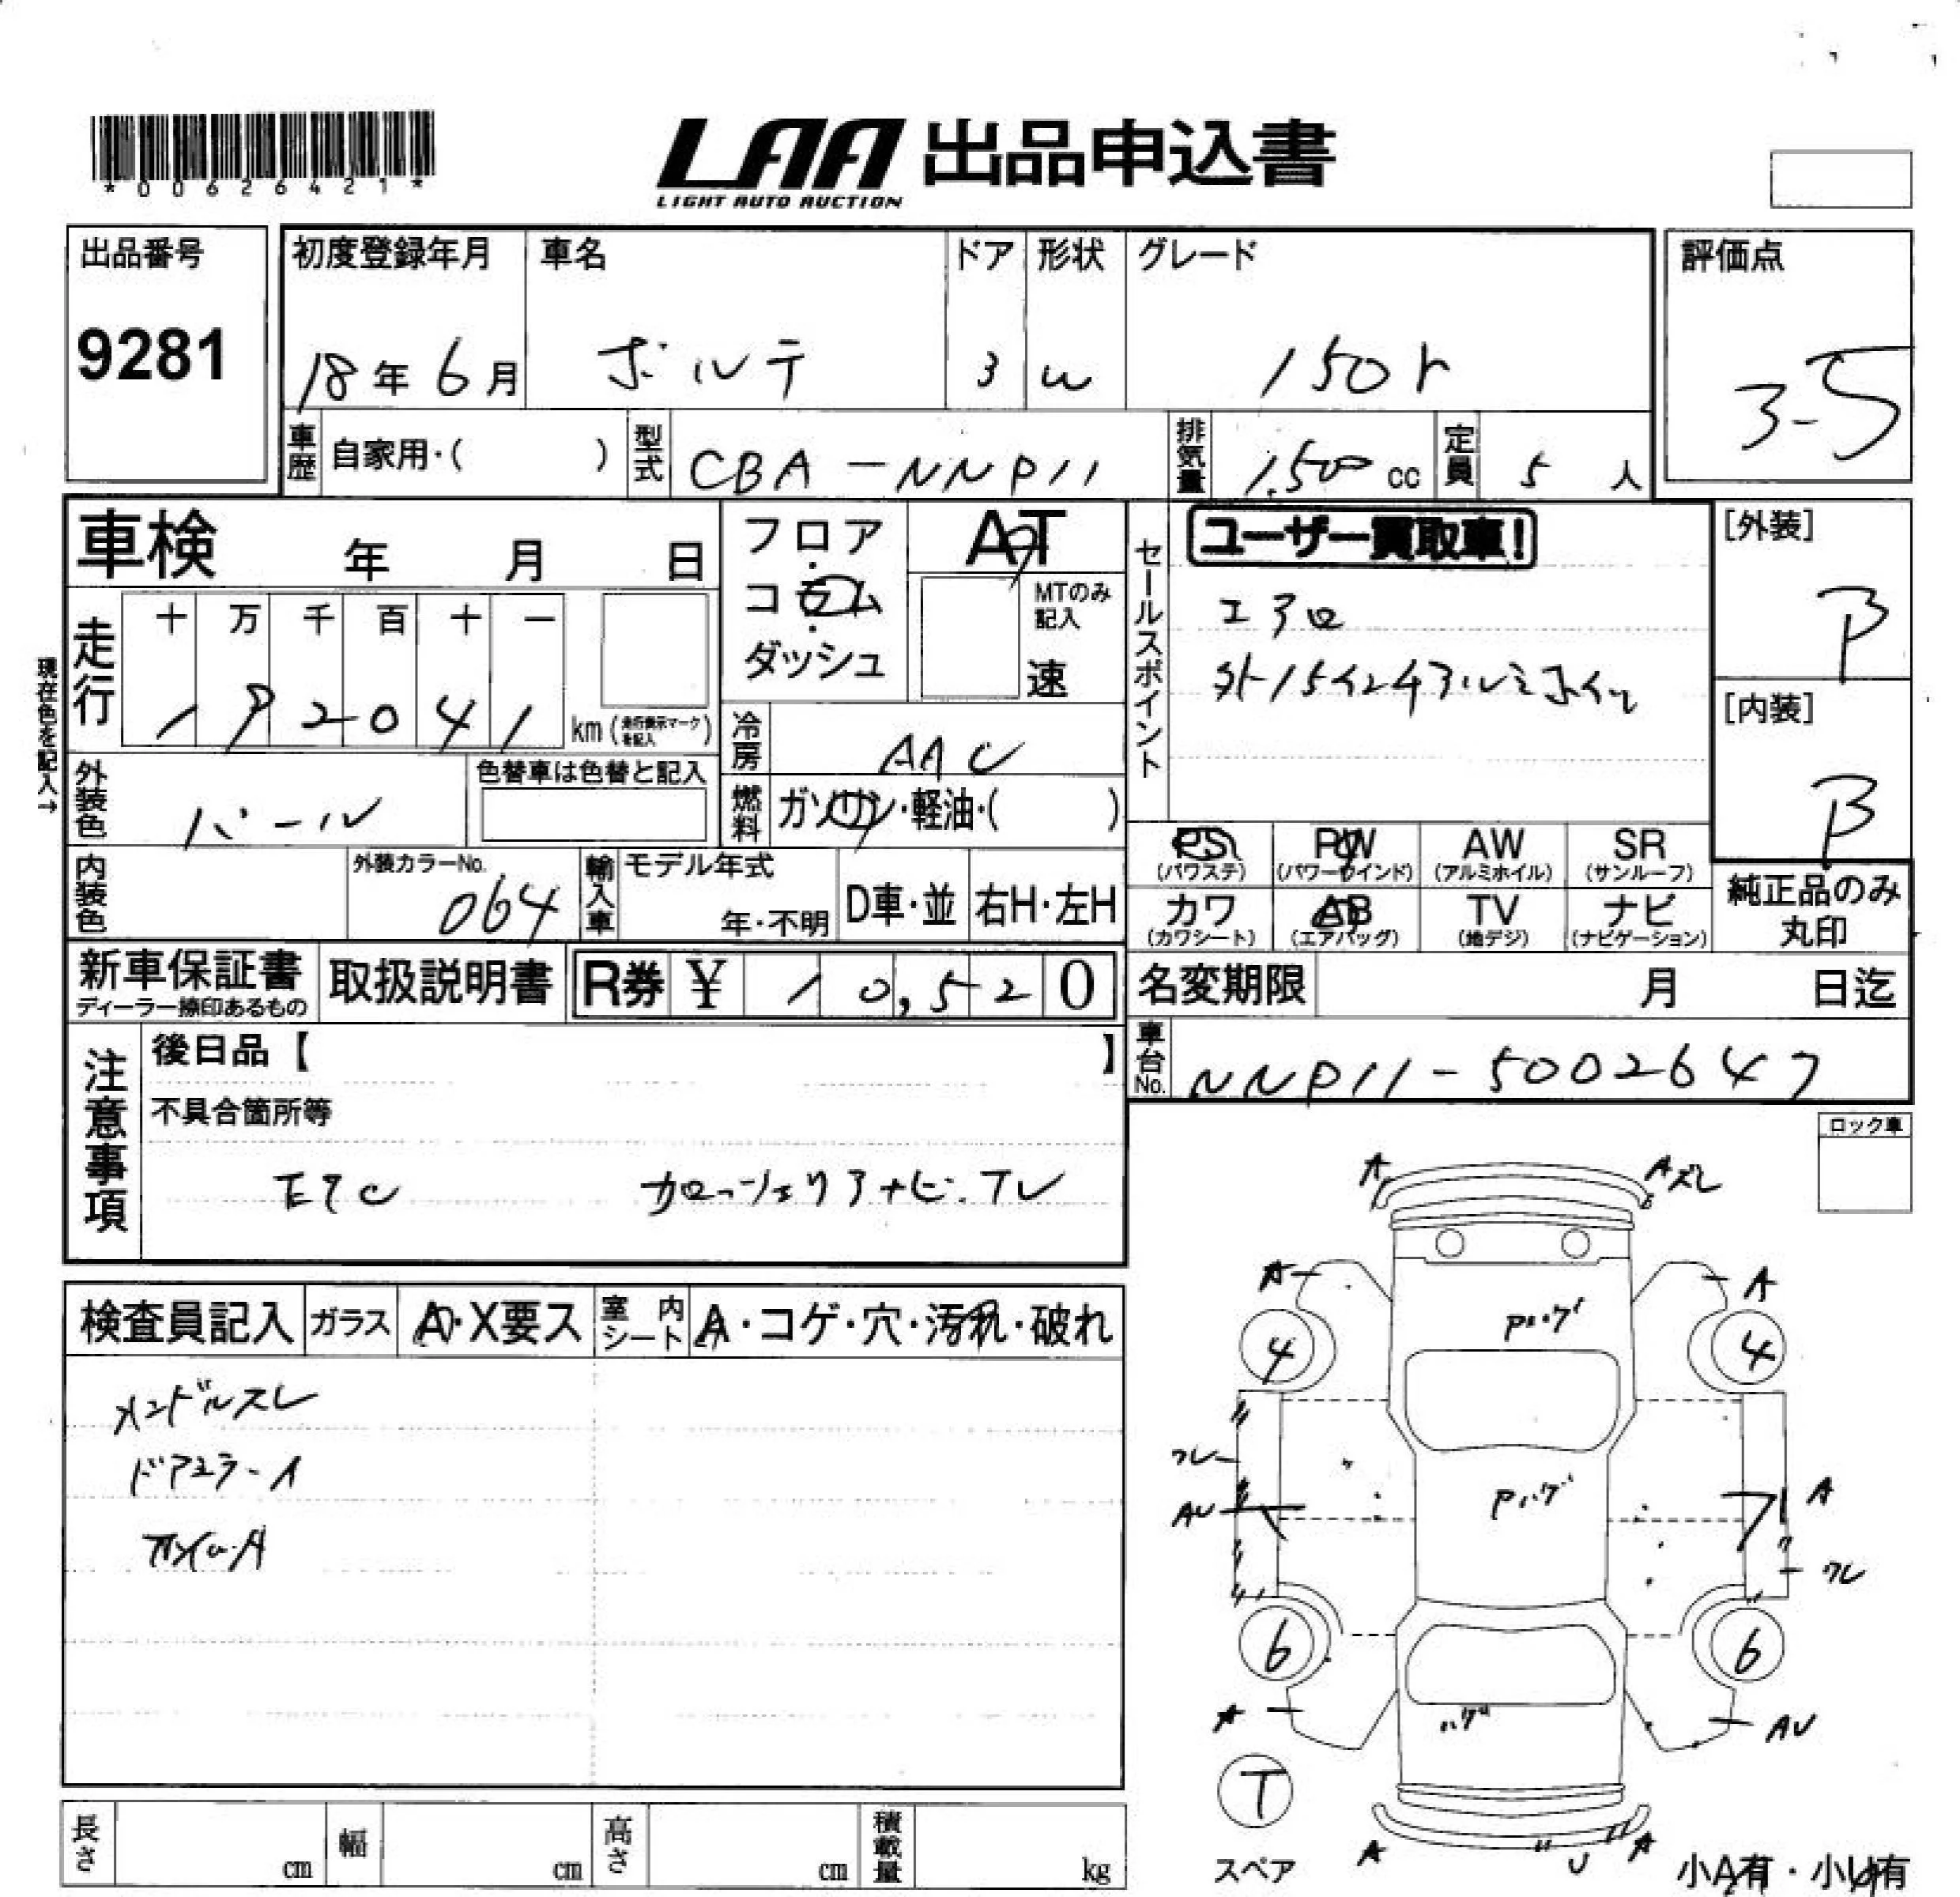 *00626421*
LAA 出品申込書
LIGHT AUTO AUCTION
出品番号 初度登録年月 車名 ドア 形状 グレード 評価点
9281 18年6月 ポルテ 3 W 150r 3-5
車歴 自家用・( ) 型式 CBA-NNP11 排気量 1,500 cc 定員 5 人
車検 年 月 日 フロア・コラム・ダッシュ AT セールスポイント ユーザー買取車! [外装] B
MTのみ記入 速
エアロ
外15インチアルミホイル
現在色を記入→
走行 十 万 千 百 十 一
192041 km (走行表示マークを記入)
[内装] B
冷房 AAC
外装色 パール 色替車は色替と記入 燃料 ガソリン・軽油・( )
PS (パワステ) PW (パワーウインド) AW (アルミホイル) SR (サンルーフ)
内装色 外装カラーNo. 064 輸入車 モデル年式 年・不明 D車・並 右H・左H
カワ (カワシート) AB (エアバッグ) TV (地デジ) ナビ (ナビゲーション) 純正品のみ丸印
新車保証書 ディーラー捺印あるもの 取扱説明書 R券 ¥ 10,520 名変期限 月 日迄
注意事項 後日品【 】 車台No. NNP11-5002647
不具合箇所等
ETC カロッツェリアナビ・TV
ロック車
A Aズレ
検査員記入 ガラス A・X要ス 室内シート A・コゲ・穴・汚れ・破れ
A A
Pハゲ
4 4
ハンドルスレ
ドアミラーA
ワレ
AU Pハゲ A
ワレ
6 6
A ハゲ AU
T
スペア A U A 小A有・小U有
長さ cm 幅 cm 高さ cm 積載量 kg